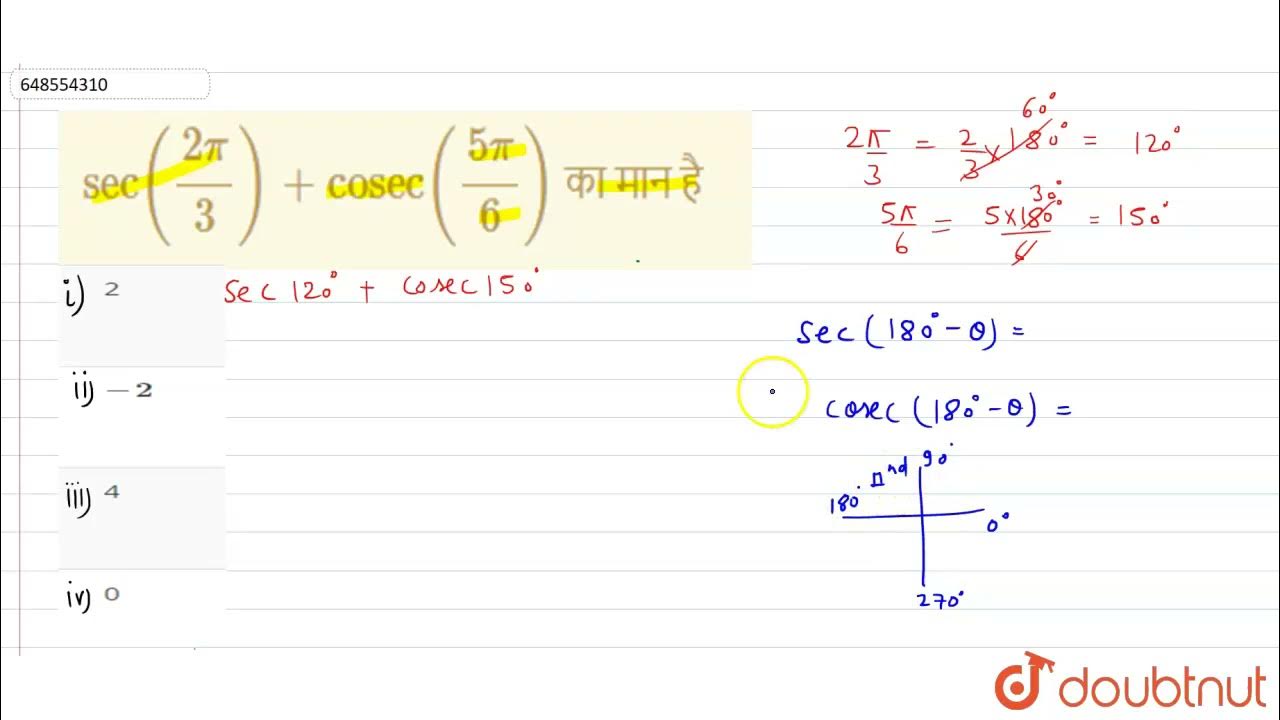 648554310
sec(2π/3) + cosec(5π/6) का मान है
i) 2
ii) -2
iii) 4
iv) 0
sec 120° + cosec 150°
60°
2π/3 = 2/3 × 180° = 120°
30°
5π/6 = 5×180°/6 = 150°
sec(180°-θ) =
cosec(180°-θ) =
IInd 90°
180°
0°
270°
doubtnut